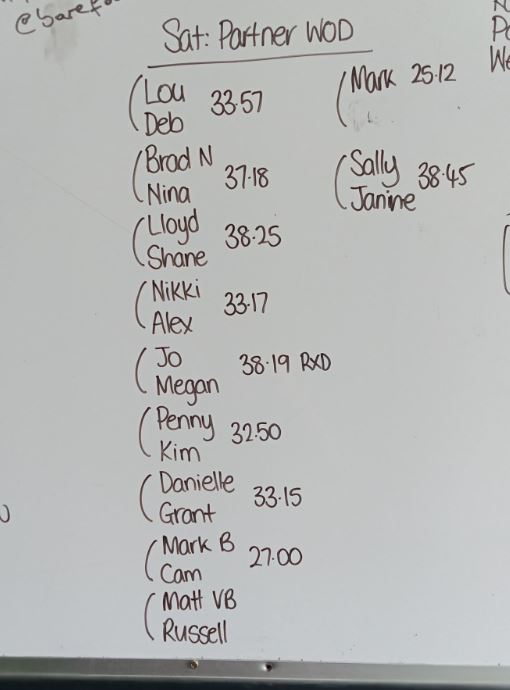 Sat: Partner WOD
Lou
Deb 33.57
Brad N
Nina 37.18
Lloyd
Shane 38.25
Nikki
Alex 33.17
Jo
Megan 38.19 RXD
Penny
Kim 32.50
Danielle
Grant 33.15
Mark B
Cam 27.00
Matt VB
Russell
Mark 25.12
Sally
Janine 38.45